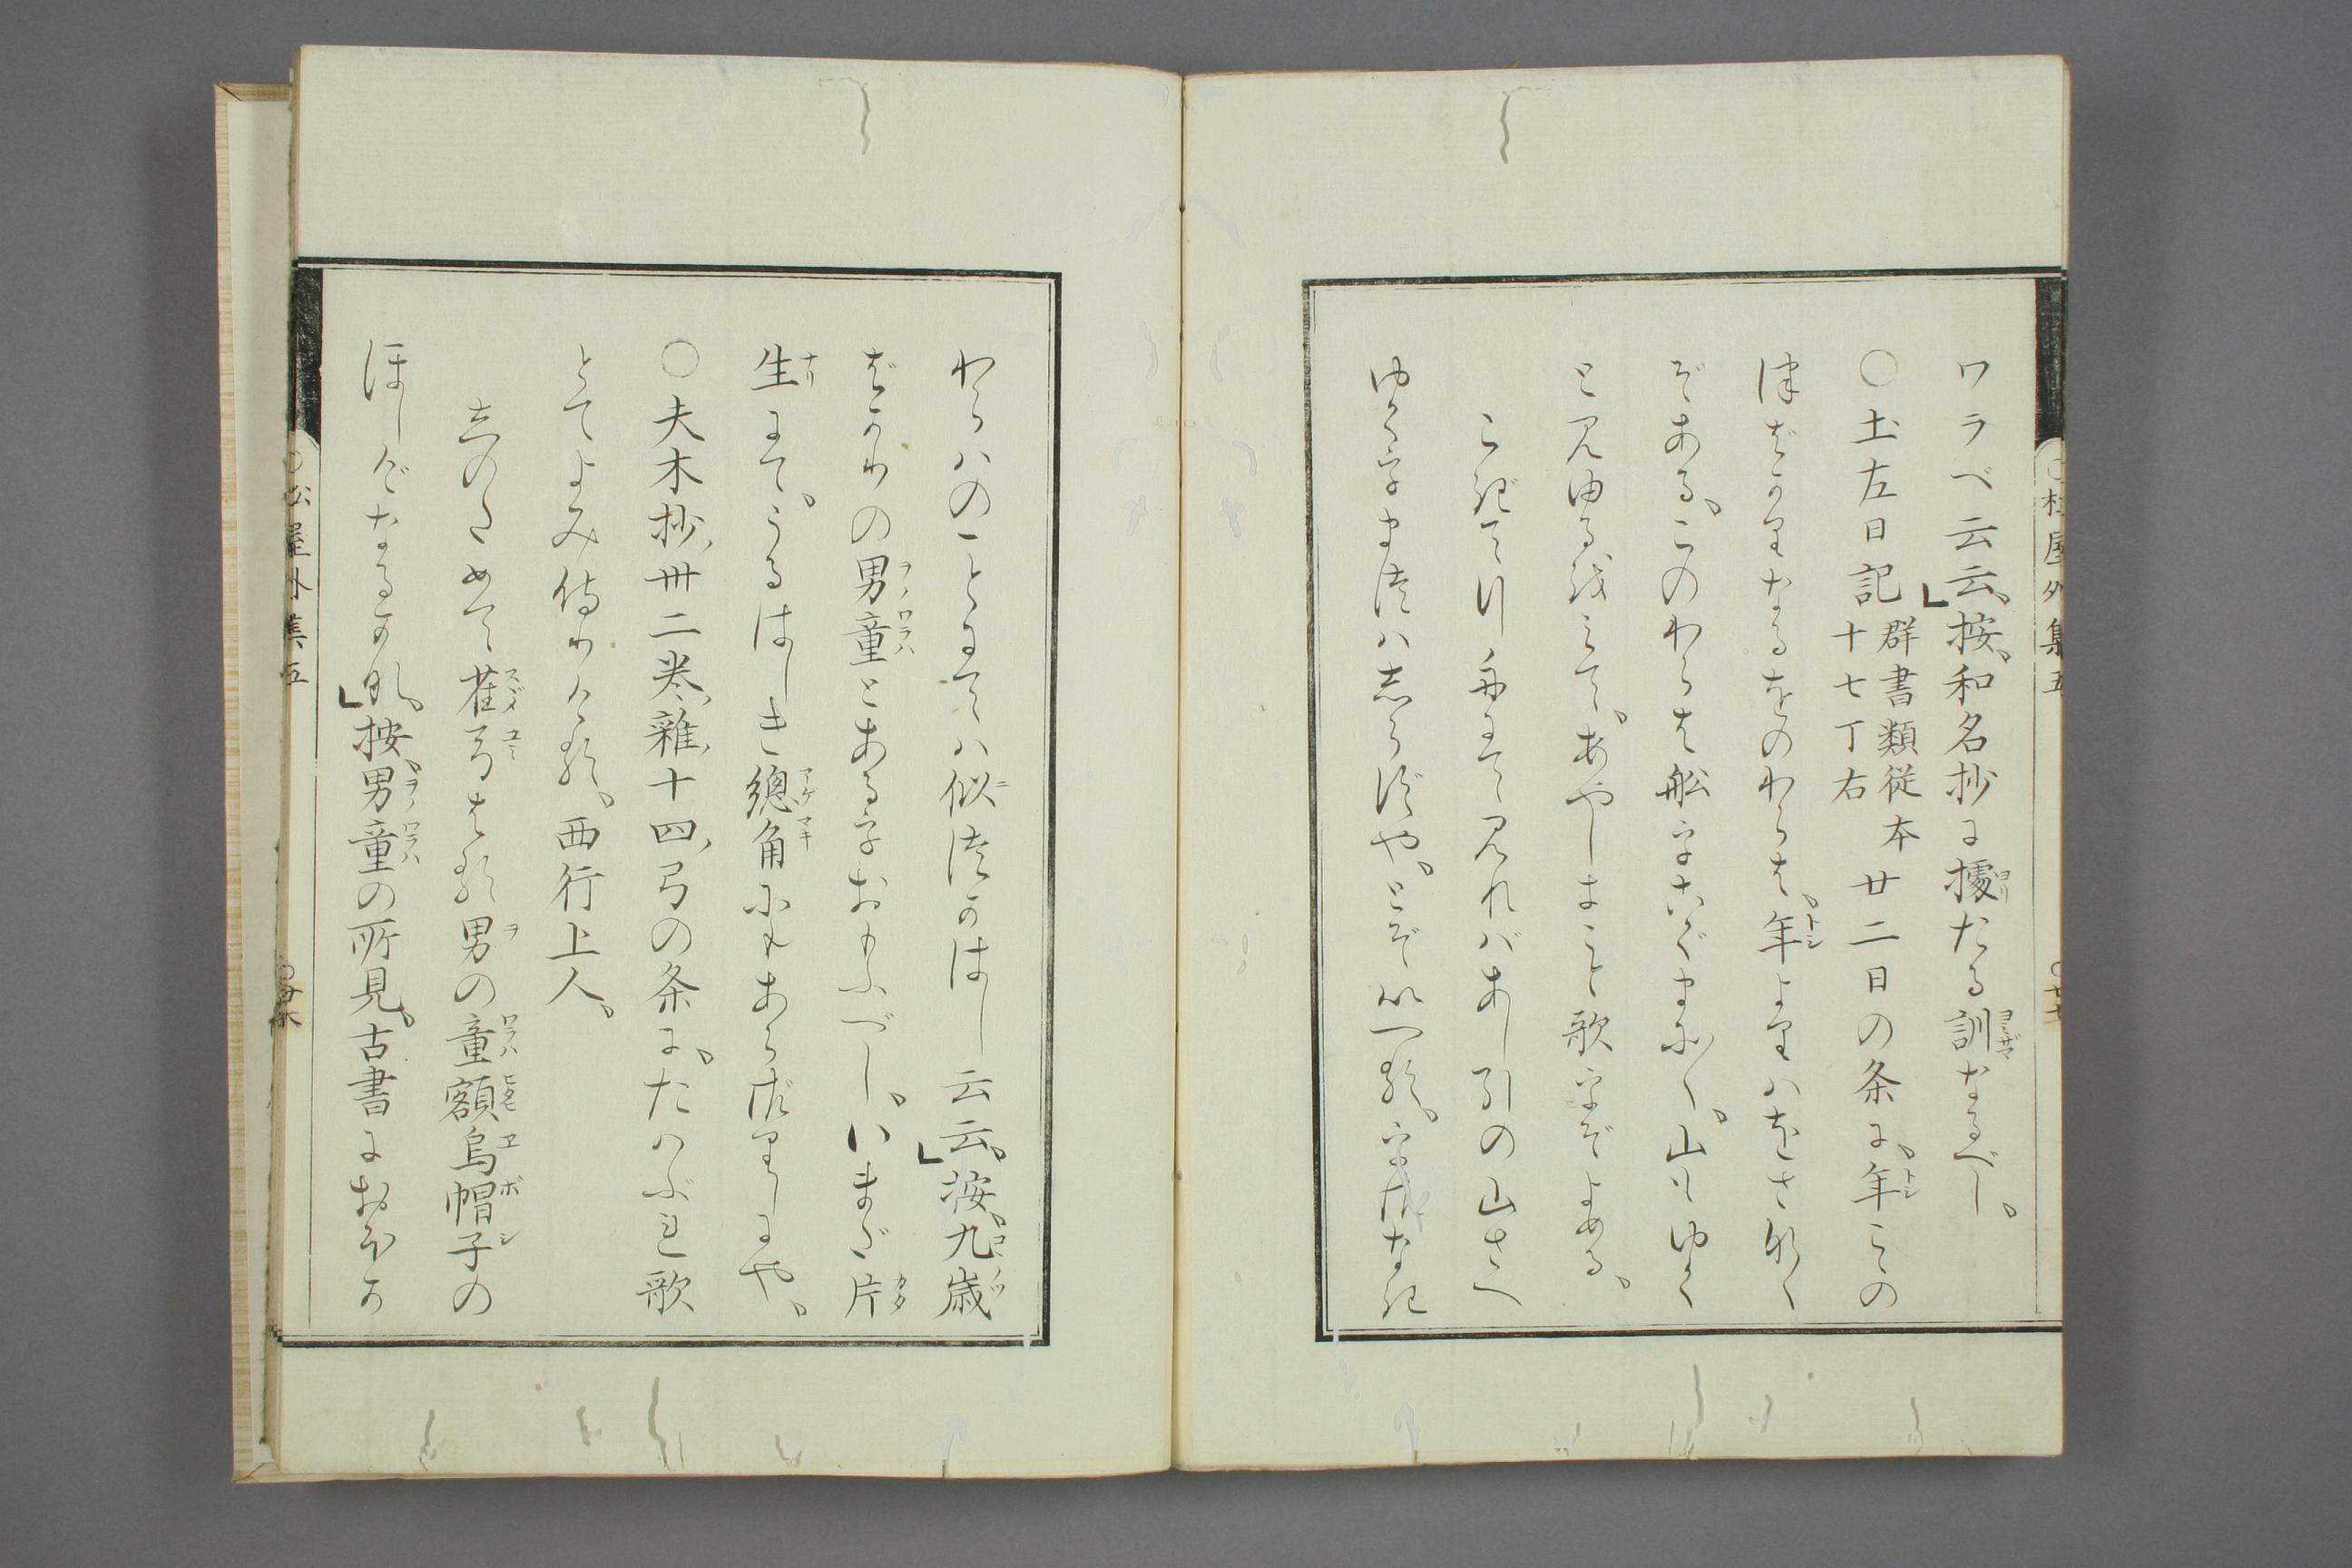 ワラベ云云、」按、和名抄に據たる訓なるべし。
○土左日記群書類従本十七丁右廿二日の条に、年こゝの
つばかりなるをのわらは、年よりはをさなく
ぞある、このわらは船をこぐまに〳〵、山もゆく
と見ゆるをみて、あやしきこと歌をぞよめる、
こぎて行舟にて見ればあし引の山さへ
ゆくをまつはしらずや、とぞいへる、をさなき
わらはのことにては似つかはし云云、」按、九歳
ばかりの男童とあるをおもふべし、いまだ片
生にて、うるはしき總角にもあらざりしにや、
○夫木抄、卅二巻、雜、十四、弓の条に、たはぶれ歌
とてよみ侍りける、西行上人、
しのためて雀弓はる男の童額烏帽子の
ほしげなるかな、」按、男童の所見、古書におほか
○松屋外集五